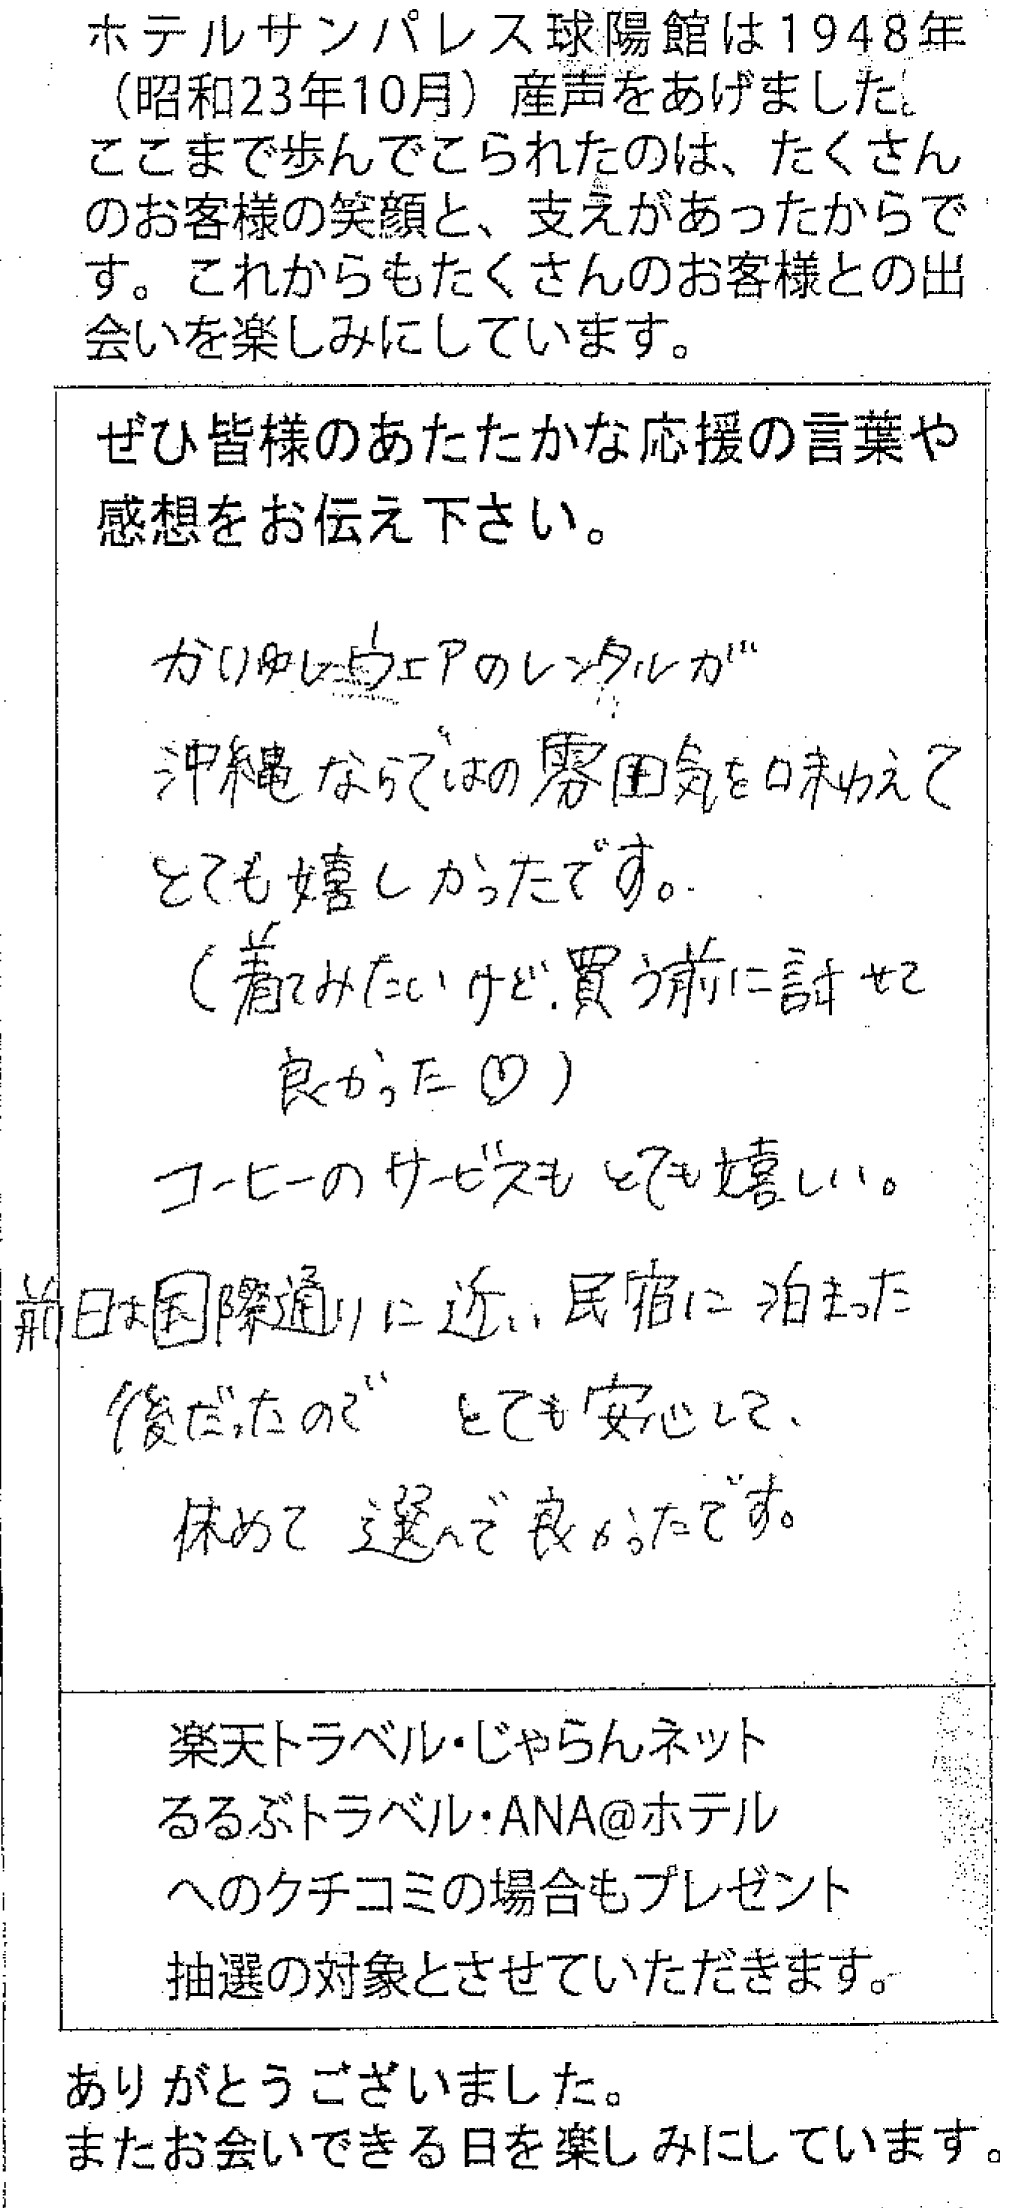 ホテルサンパレス球陽館は1948年
（昭和23年10月）産声をあげました。
ここまで歩んでこられたのは、たくさん
のお客様の笑顔と、支えがあったからで
す。これからもたくさんのお客様との出
会いを楽しみにしています。
ぜひ皆様のあたたかな応援の言葉や
感想をお伝え下さい。
かりゆしウェアのレンタルが
沖縄ならではの雰囲気を味わえて
とても嬉しかったです。
(着てみたいけど、買う前に試せて
良かった♡)
コーヒーのサービスもとても嬉しい。
前日は国際通りに近い民宿に泊まった
後だったので とても安心して、
休めて 選んで良かったです。
楽天トラベル・じゃらんネット
るるぶトラベル・ANA@ホテル
へのクチコミの場合もプレゼント
抽選の対象とさせていただきます。
ありがとうございました。
またお会いできる日を楽しみにしています。